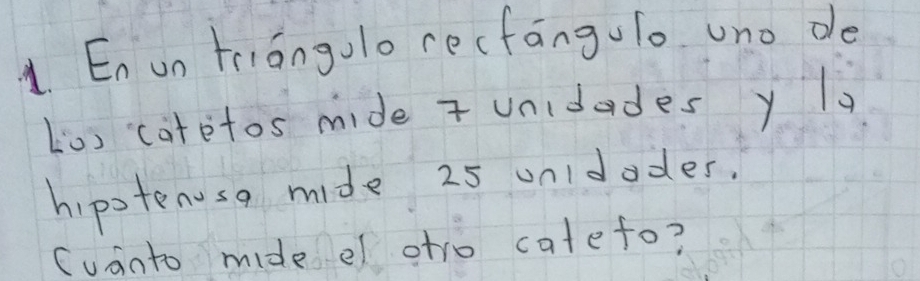 1. En un triángulo rectángulo uno de
Los catetos mide 7 unidades y la
hipotenusa mide 25 unidades.
Cuánto mide el otro cateto?